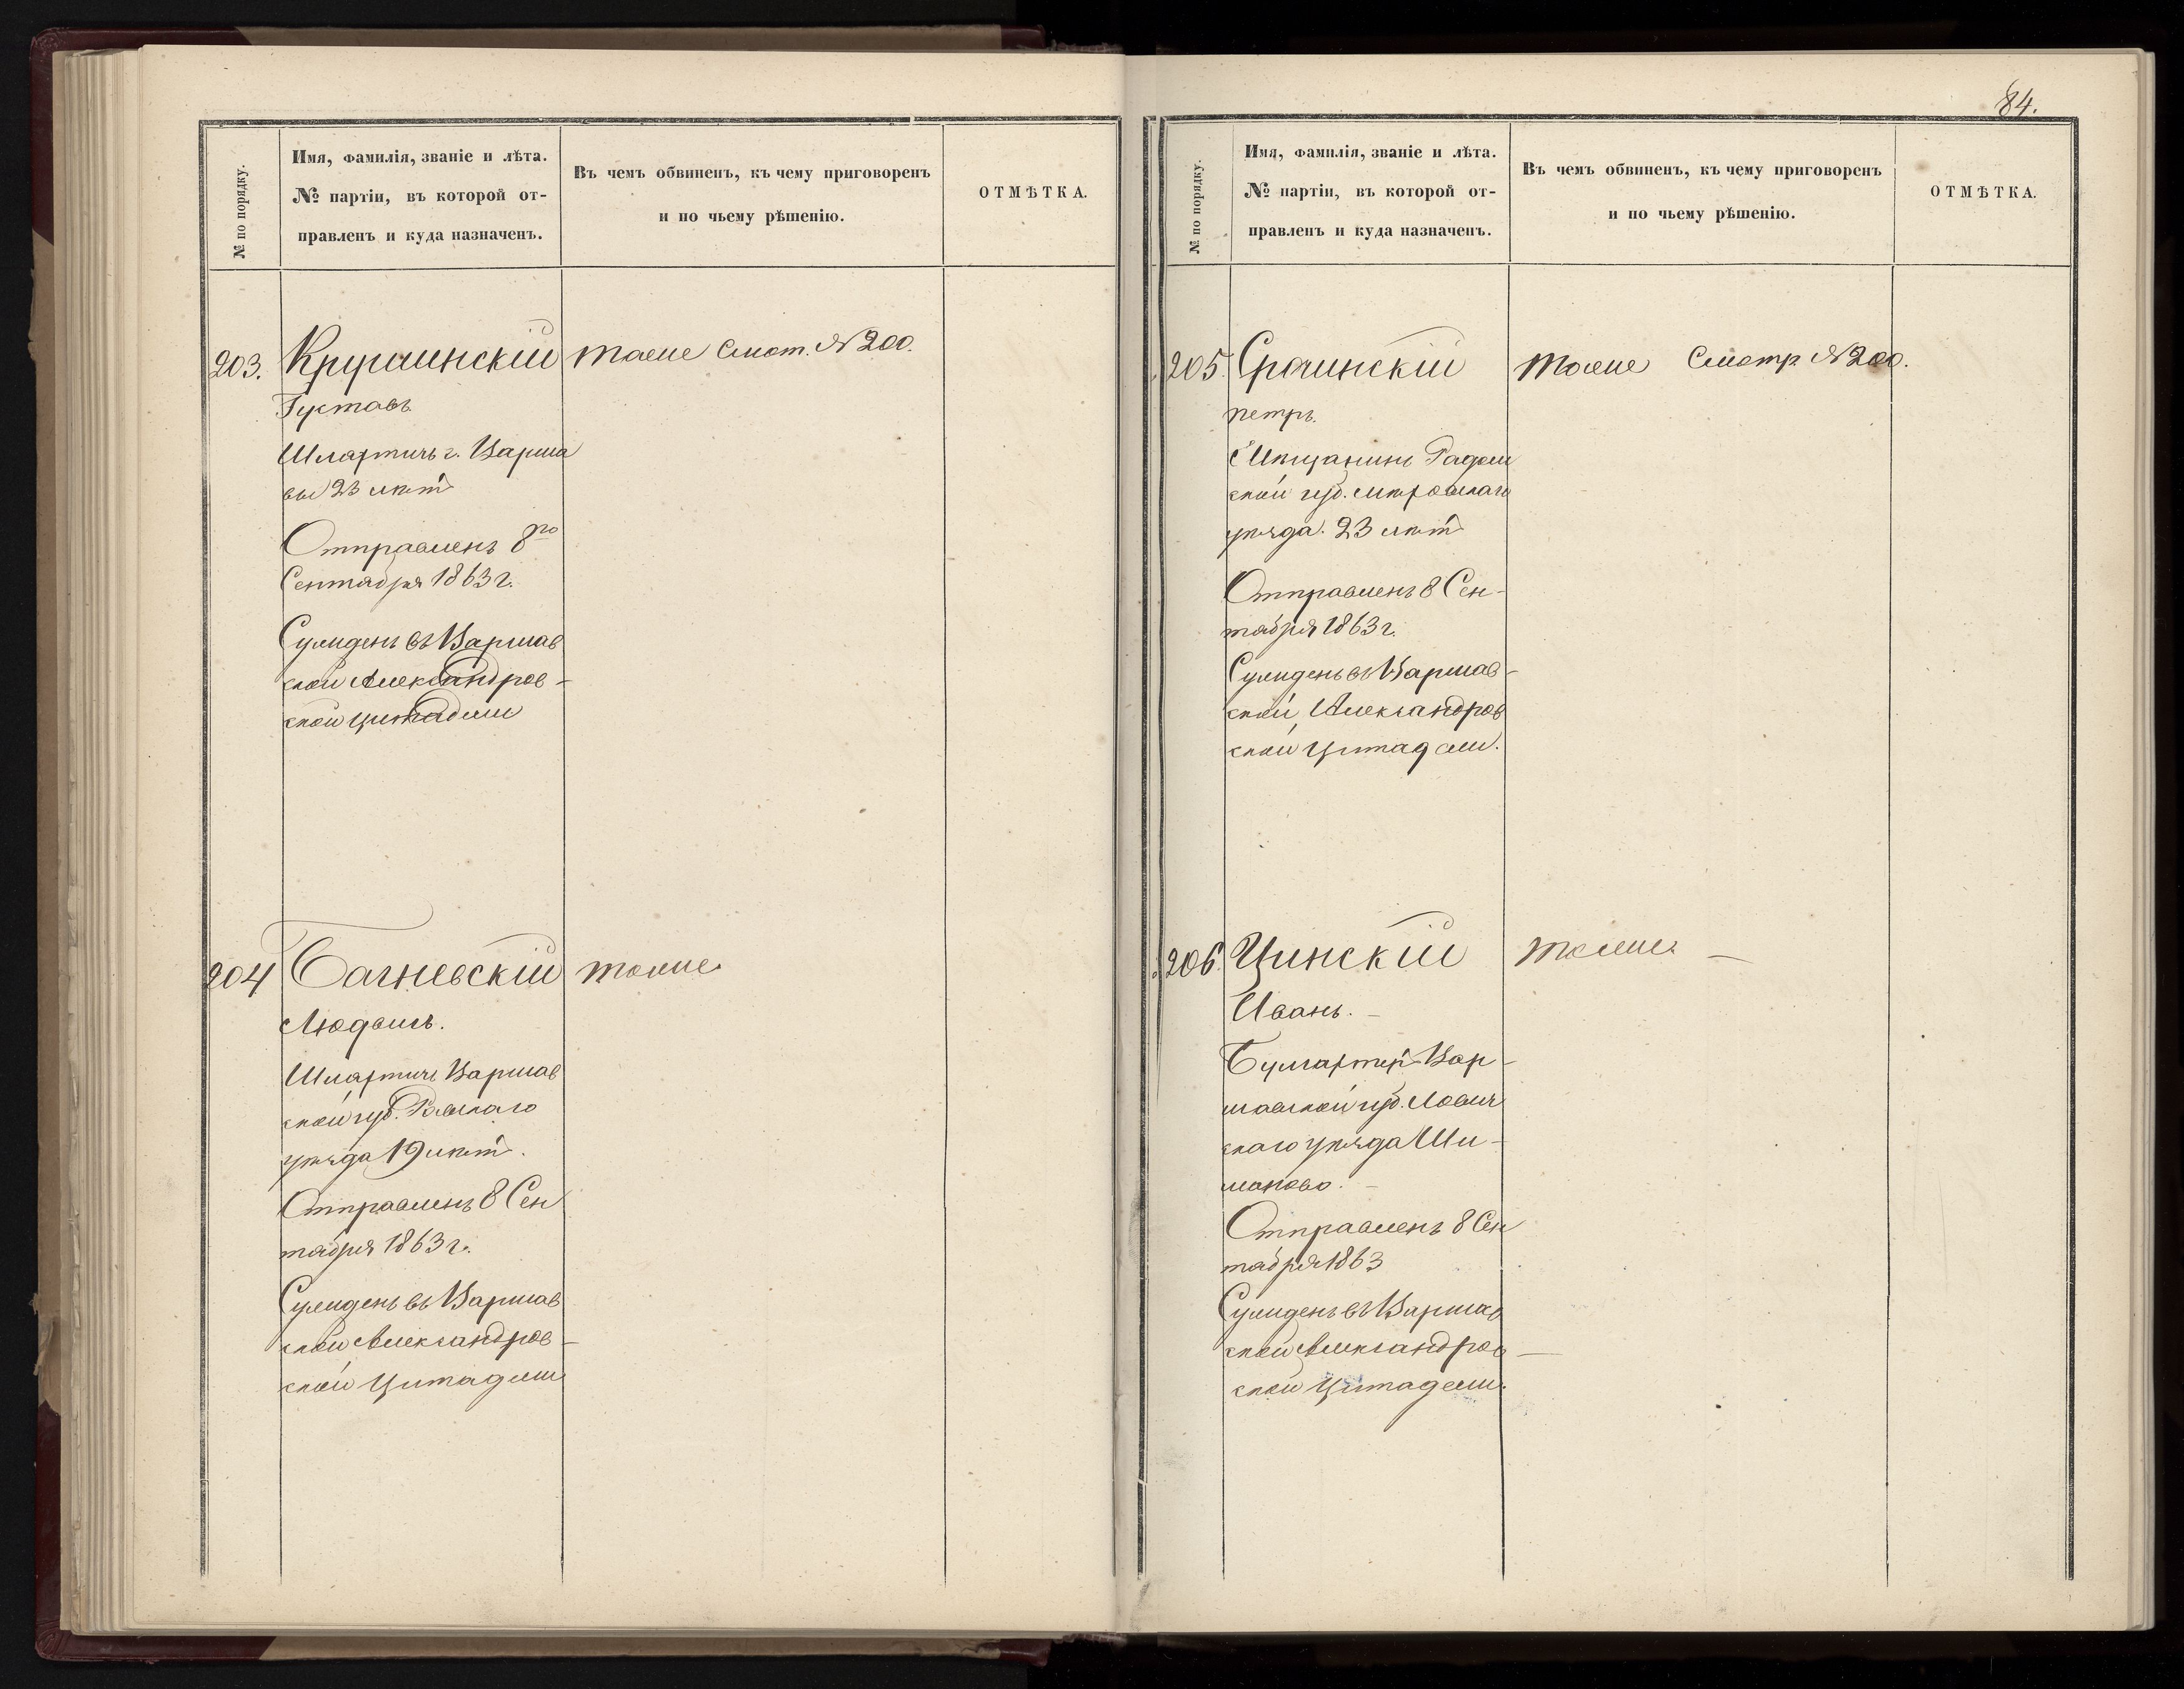 № по порядку.
Имя, фамилія, званіе и лѣта.
№ партіи, въ которой от-
правленъ и куда назначенъ.
Въ чемъ обвиненъ, къ чему приговоренъ
и по чьему рѣшенію.
ОТМѢТКА.
203.
Крушинскій
Густавъ.
Шляхтичь г. Варша
вы 23 лѣтъ
Отправленъ 8го
Сентября 1863 г.
Сужденъ въ Варшав
ской Александров-
ской цитадели
тоже Смот. № 200.
204
Багневскій
Людвигъ.
Шляхтичь Варшав
ской губ. Равскаго
уѣзда 19 лѣтъ.
Отправленъ 8 Сен
тября 1863 г.
Сужденъ въ Варшав
ской Александров-
ской Цитадели
тоже
84.
№ по порядку.
Имя, фамилія, званіе и лѣта.
№ партіи, въ которой от-
правленъ и куда назначенъ.
Въ чемъ обвиненъ, къ чему приговоренъ
и по чьему рѣшенію.
ОТМѢТКА.
205.
петръ.
Мѣщанинъ Радом
ской губ.
уѣзда. 23 лѣтъ
Отправленъ 8 Сен-
тября 1863 г.
Сужденъ въ Варшав-
ской Александров
ской Цитадели.
тоже Смотр. № 200.
206.
Цинскій
Иванъ. -
Бухгалтеръ Вар-
шавской губ. Лович
скаго уѣзда Ши-
маново. -
Отправленъ 8 Сен
тября 1863
Сужденъ въ Варшав
ской Александров-
ской Цитадели.
тоже. —